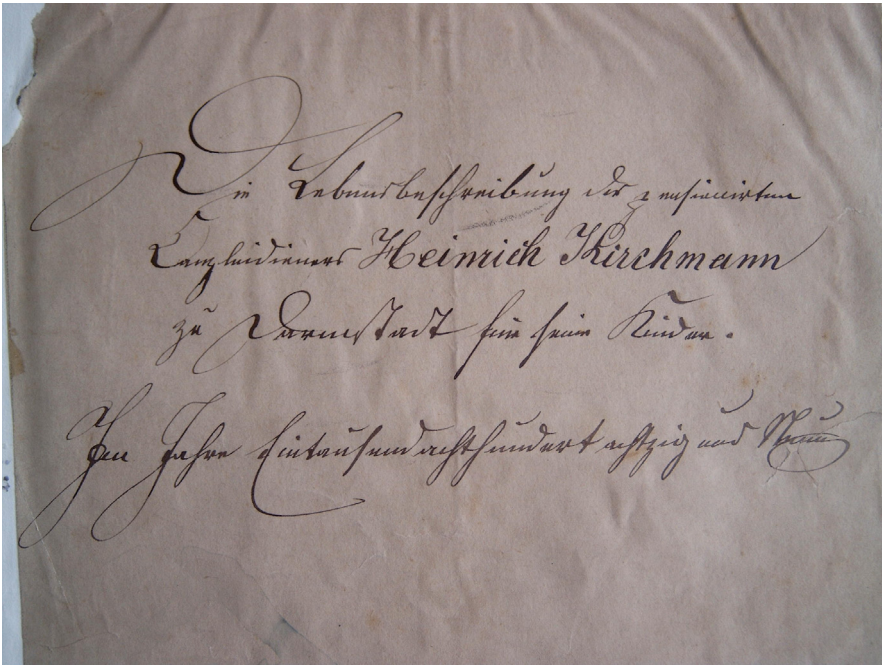 Die Lebensbeschreibung des pensionirten
Canzleidieners Heinrich Kirchmann
zu Darmstadt für seine Kinder.
Im Jahre Eintausendachthundert achtzig und Neun